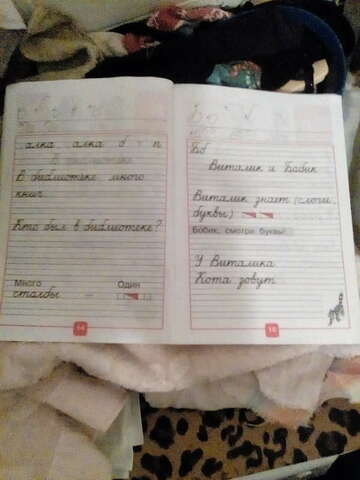 алка алка б т п
В библиотеке
В библиотеке много
книг
Кто был в библиотеке?
Много Один
столбы —
14
Бб
Виталик и Бобик
Виталик знает (слоги,
буквы)
Бобик, смотри буквы!
У Виталика
Кота зовут